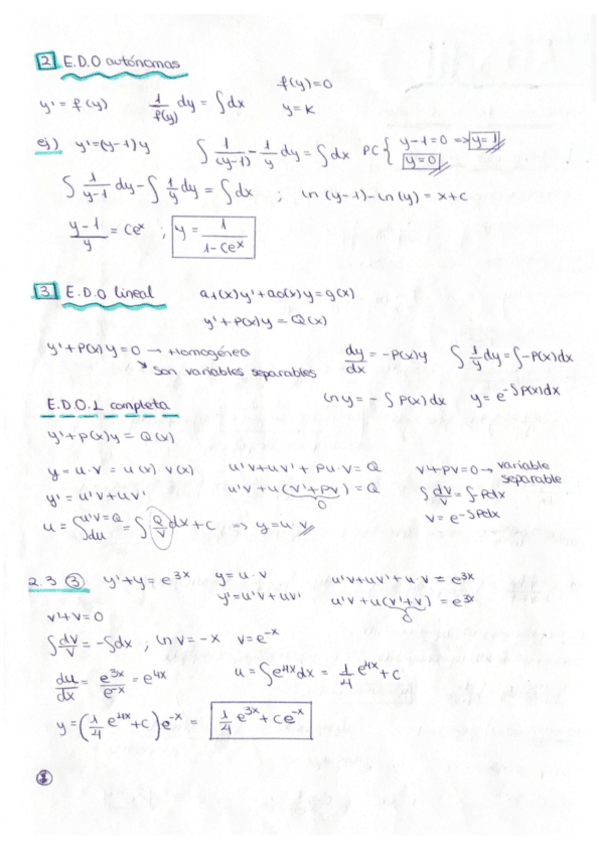 2 E.D.O autónomas
f(y)=0
y' = f(y) 1/f(y) dy = ∫dx y=K
ej) y'=(y-1)y ∫ 1/(y-1) - 1/y dy = ∫dx PC { y-1=0 => y=1
y=0
∫ 1/y-1 dy - ∫ 1/y dy = ∫dx ; ln (y-1)-ln(y) = x+c
y-1/y = ce^x ; y = 1/1-ce^x
3. E.D.O lineal a1(x)y'+a0(x)y=g(x)
y'+P(x)y = Q(x)
y'+P(x)y=0 → Homogénea dy/dx = -P(x)y ∫ 1/y dy = ∫-P(x)dx
↳ son variables separables ln y = -∫P(x)dx y = e^-∫P(x)dx
E.D.O.L completa
y'+p(x)y = Q(x)
y = u·v = u(x)·v(x) u'v+uv'+pu·v=Q v'+pv=0 → variable separable
y' = u'v+uv' u'v+u(v'+pv)=Q ∫ dv/v = ∫-pdx
0
u = ∫ u'v=Q/du = ∫ Q/v dx+c => y=u·v v = e^-∫pdx
2.3 3 y'+y=e^3x y=u·v u'v+uv'+u·v = e^3x
y'=u'v+uv' u'v+u(v'+v) = e^3x
0
v'+v=0
∫ dv/v = -∫dx ; ln v = -x v=e^-x
du/dx = e^3x/e^-x = e^4x u = ∫e^4x dx = 1/4 e^4x+c
y = (1/4 e^4x+c)e^-x = 1/4 e^3x+ce^-x
1